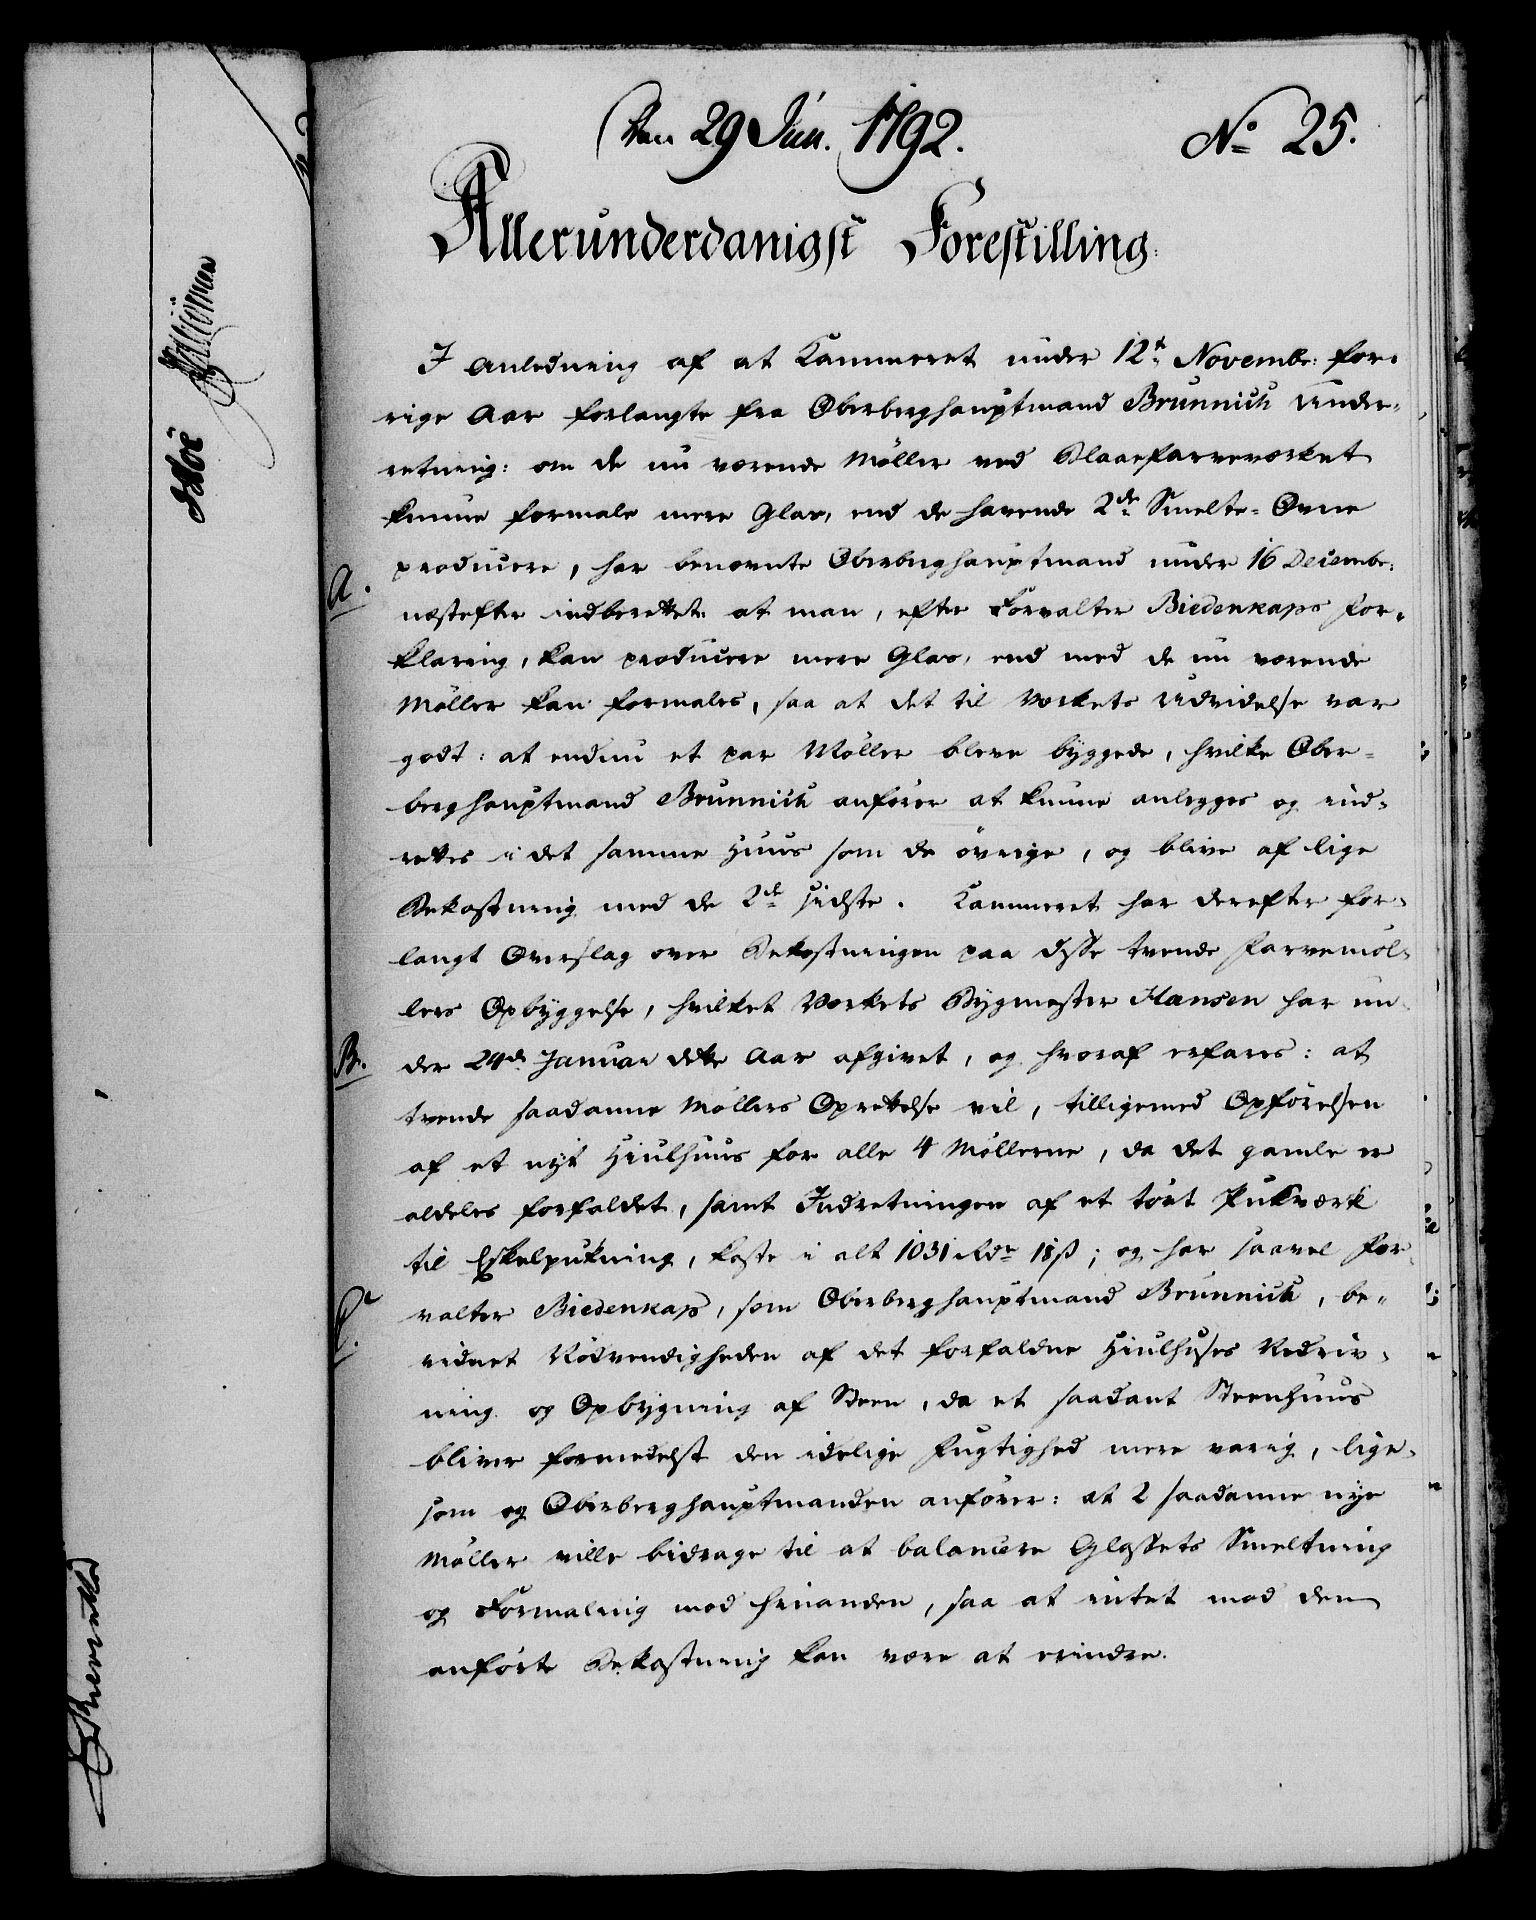 Den 29 Jun. 1792.
No 25.
Allerunderdanigst Forestilling.
I Anledning af at Kammeret under 12te Novembr: for-
rige Aar forlangte fra Oberberghauptmand Brunnich Under-
retning: om de nu værende Møller ved Blaaefarveværket
kunne formale mere Glas, end de havende 2de Smelte-Ovne
producere, har benævnte Oberberghauptmand under 16 Decembr:
A.
næstefter indberettet: at man, efter Forvalter Biedenkaps For-
klaring, kan producere mere Glas, end med de nu værende
Møller kan formales, saa at det til Værkets Udvidelse var
godt: at endnu et par Møller bleve byggede, hvilke Ober-
berghauptmand Brunnich anfører at kunne anlegges og ind-
rettes i det samme Huus som de øvrige, og blive af lige
Bekostning med de 2de sidste. Kammeret har derefter for-
langt Overslag over Bekostningen paa disse tvende Farvemøl-
lers Opbyggelse, hvilket Værkets Bygmester Hansen har un-
B.
der 24de Januar dette Aar afgivet, og hvoraf erfares: at
tvende saadanne Møllers Oprettelse vil, tilligemed Opførelsen
af et nyt Hiulhuus for alle 4 Møllerne, da det gamle er
aldeles forfaldet, samt Indretningen af et tørt Pukværk
til Eskelpukning, koste i alt 1031 Rdr 18 ß; og har saavel For-
C.
valter Biedenkap, som Oberberghauptmand Brunnich, be-
vidnet Nødvendigheden af det forfaldne Hiulhuses Nedriv-
ning og Opbygning af Steen, da et saadant Steenhuus
bliver formedelst den idelige Fugtighed mere varig, lige-
som og Oberberghauptmanden anfører: at 2 saadanne nye
Møller ville bidrage til at balancere Glassets Smeltning
og Formaling mod hinanden, saa at intet mod den
anførte Bekostning kan være at erindre.